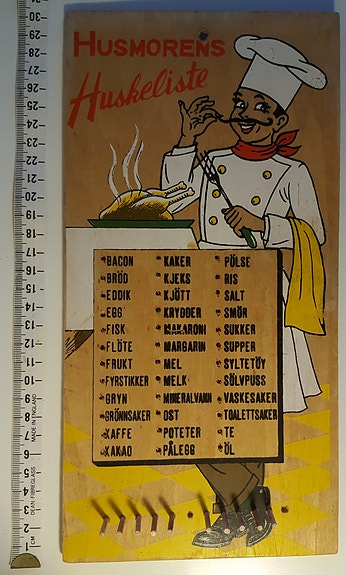 HUSMORENS
Huskeliste
BACON
BRÖD
EDDIK
EGG
FISK
FLÖTE
FRUKT
FYRSTIKKER
GRYN
GRÖNNSAKER
KAFFE
KAKAO
KAKER
KJEKS
KJÖTT
KRYDDER
MAKARONI
MARGARIN
MEL
MELK
MINERALVANN
OST
POTETER
PÅLEGG
PÖLSE
RIS
SALT
SMÖR
SUKKER
SUPPER
SYLTETÖY
SÖLVPUSS
VASKESAKER
TOALETTSAKER
TE
ÖL
31
30
29
28
27
26
25
24
23
22
21
20
19
18
17
16
15
14
13
12
11
10
9
8
7
6
5
4
3
2
1 CM
MADE IN ENGLAND
DEAN FIBREGLASS